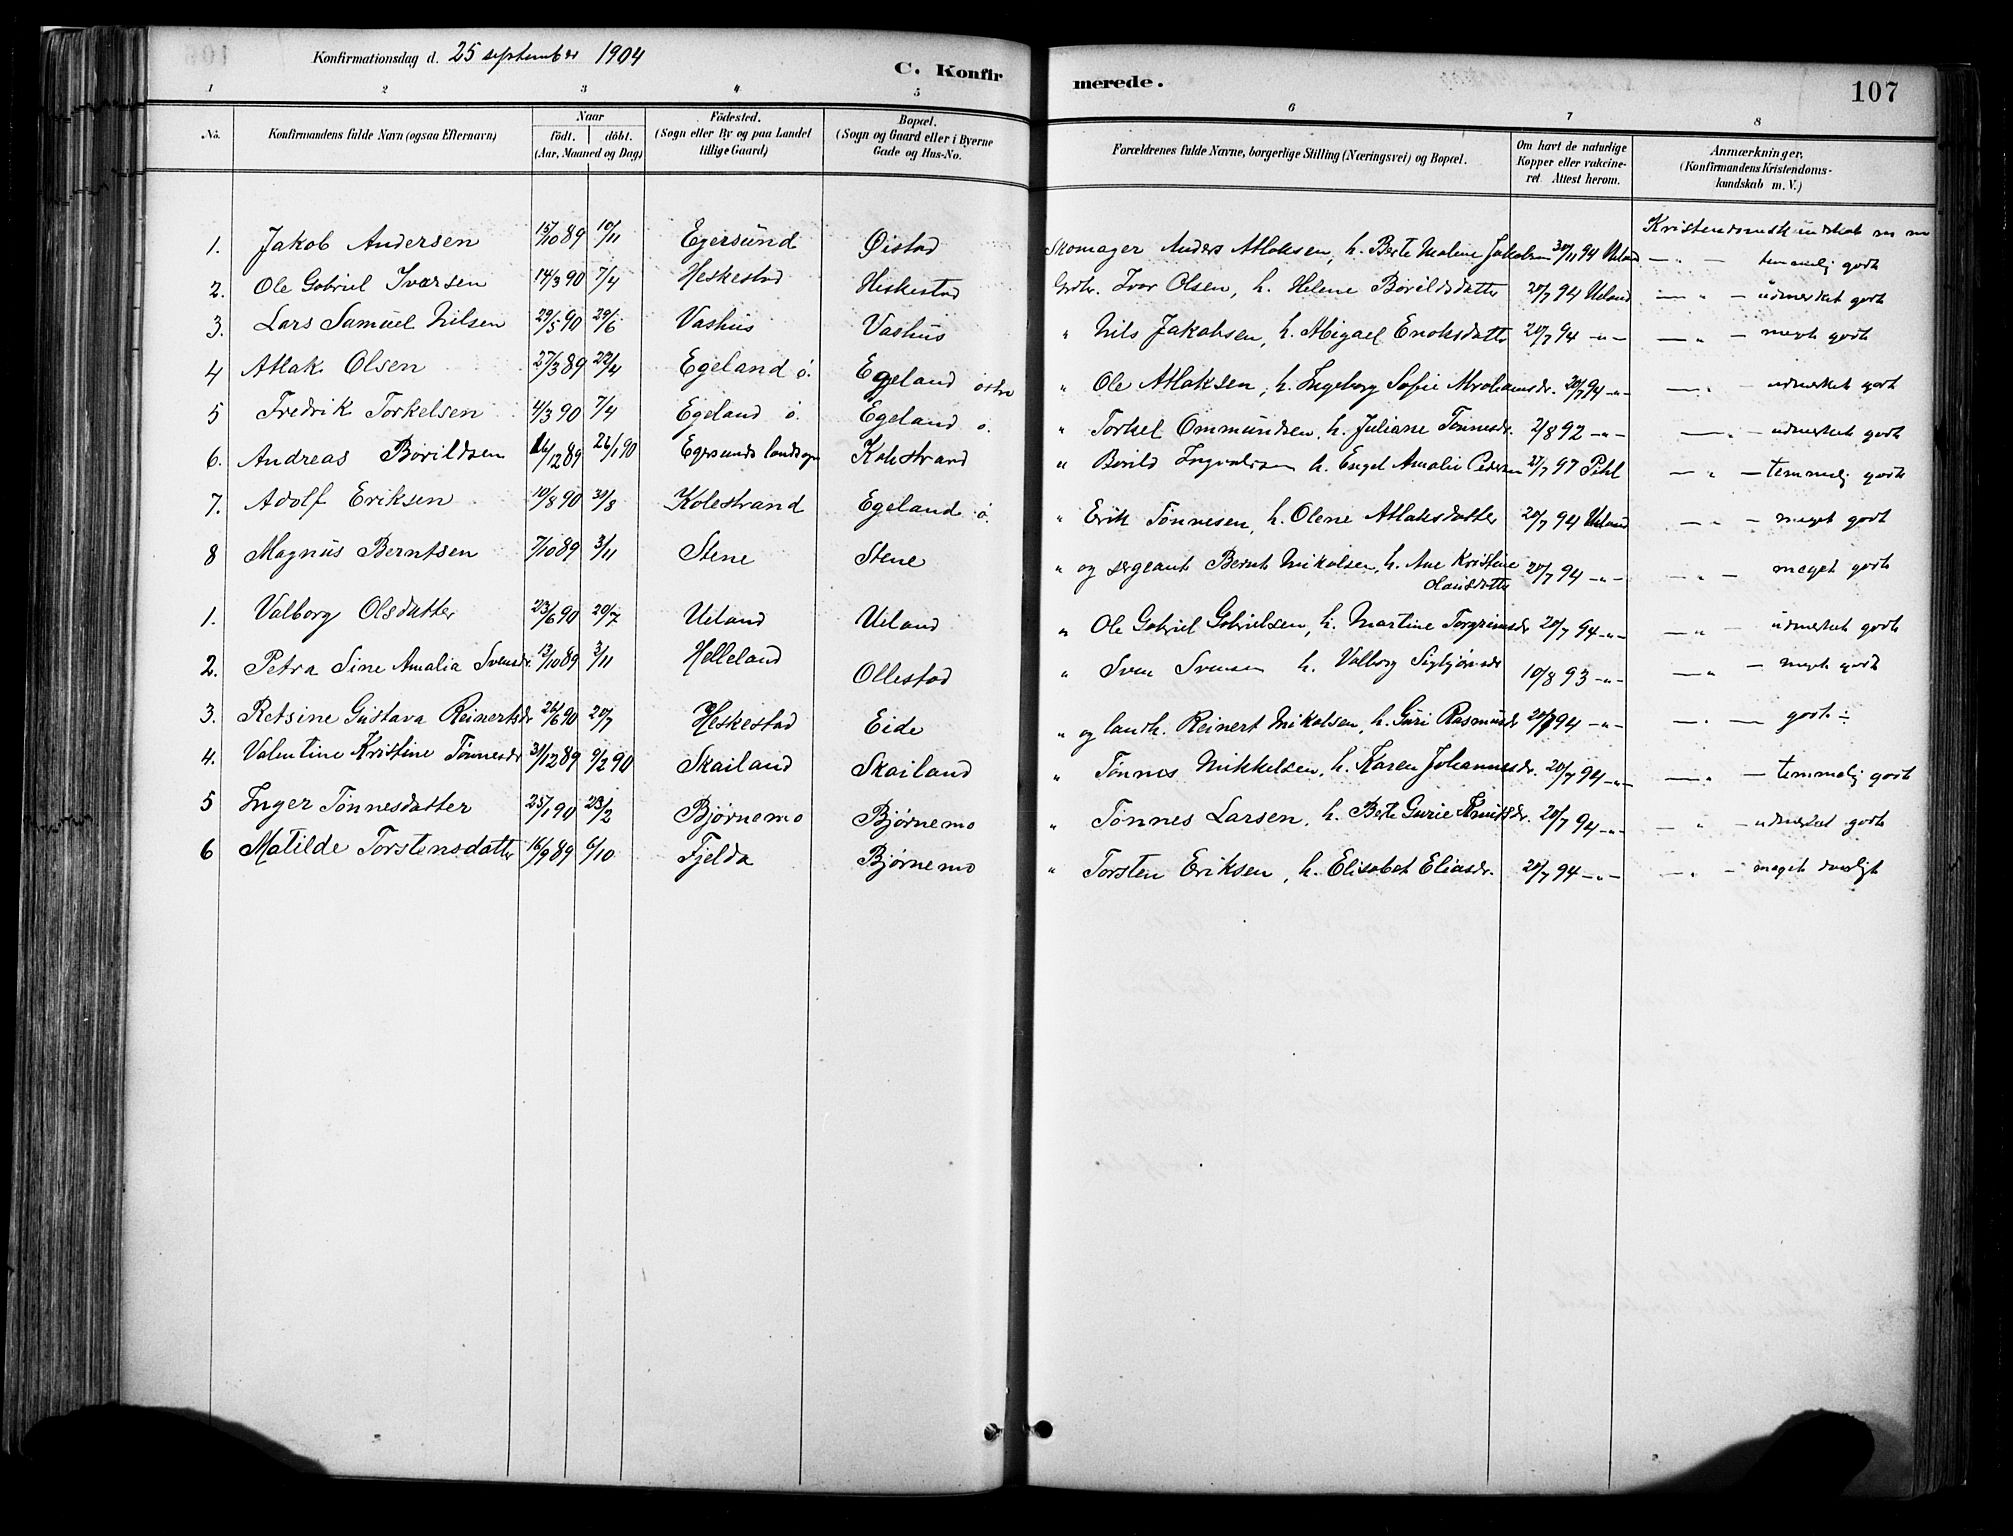 Konfirmationsdag d. 25 september 1904
C. Konfirmerede.
107
1 2 3 4 5 6 7 8
No. Konfirmandens fulde Navn (ogsaa Efternavn) Naar födt. döbt. (Aar, Maaned og Dag) Födested. (Sogn eller By og paa Landet tillige Gaard) Bopæl. (Sogn og Gaard eller i Byerne Gade og Hus-No. Forældrenes fulde Navne, borgerlige Stilling (Næringsvei) og Bopæl. Om havt de naturlige Kopper eller vakcineret Attest herom. Anmærkninger. (Konfirmandens Kristendomskundskab m.V.)
1. Jakob Andersen 15/10 89 10/11 Egersund Øistad Skomager Anders Atlaksen, h. Berte Malene Jakobsen 30/11 94 Ueland Kristendomskundskab m m —"— temmelig godt
2. Ole Gabriel Iversen 14/3 90 7/4 Heskestad Heskestad Grdbr. Ivar Olsen, h. Helene Børildsdatter 20/7 94 Ueland —"— udmerket godt
3. Lars Samuel Nilsen 29/5 90 29/6 Vashus Vashus " Nils Jakobsen, h. Abigael Enoksdatter 20/7 94 -"- —"— meget godt
4 Atlak Olsen 27/3 89 22/4 Egeland ö. Egeland östre " Ole Atlaksen, h. Ingeborg Sofie Abrahamsdr. 20/7 94 -"- —"— udmerket godt
5 Fredrik Torkelsen 4/3 90 7/4 Egeland ö. Egeland ö. " Torkel Ommundsen, h. Juliane Tønnesdr. 2/8 92 -"- —"— udmerket godt
6. Andreas Børildsen 16/12 89 26/1 90 Egersunds landsogn Kolestrand " Børild Ingvaldsen h. Engel Amalie Pedersen 21/7 97 Pihl —"— temmelig godt
7. Adolf Eriksen 10/8 90 30/8 Kolestrand Egeland ö. " Erik Tønnesen, h. Olene Atlaksdatter 20/7 94 Ueland —"— meget godt
8 Magnus Berntsen 7/10 89 3/11 Stene Stene " og sergeant Bernt Mikalsen, h. Ane Kristine Lausdatter 20/7 94 -"- —"— meget godt
1. Valborg Olsdatter 23/6 90 20/7 Ueland Ueland " Ole Gabriel Gabrielsen, h. Martine Torgrimsdr 20/7 94 -"- —"— udmerket godt
2. Petra Sine Amalia Svensdr. 13/10 89 3/11 Helleland Ollestad " Sven Svensen h. Valborg Sigbjørnsdr 10/8 93 -"- —"— meget godt
3. Retsine Gustava Reinertsdr 26/6 90 20/7 Heskestad Eide " og landh. Reinert Mikalsen, h. Guri Rasmusdr 20/7 94 -"- —"— godt ÷
4. Valentine Kristine Tønnesdr 31/12 89 9/2 90 Skailand Skailand " Tønnes Mikkelsen, h. Karen Johannesdr. 20/7 94 -"- —"— temmelig godt
5 Inger Tønnesdatter 25/1 90 23/2 Bjørnemo Bjørnemo " Tønnes Larsen, h. Berte Gurie Knudsdr. 20/7 94 -"- —"— udmerket godt
6 Matilde Torstensdatter 16/9 89 6/10 Fjelda Bjørnemo " Torsten Eriksen, h. Elisabet Eliasdr. 20/7 94 -"- —"— meget daarligt